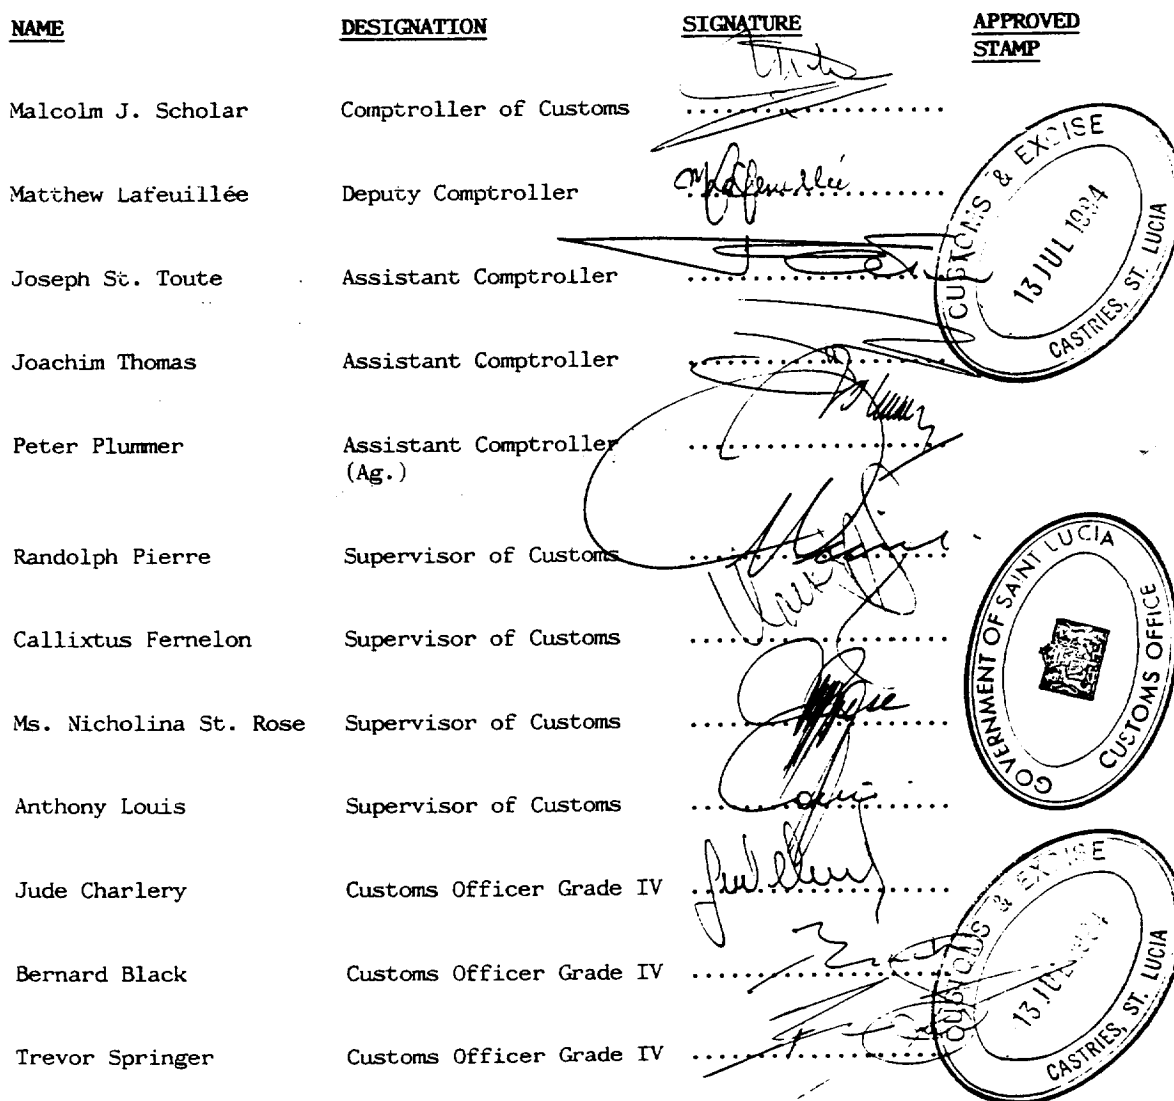 NAME DESIGNATION SIGNATURE APPROVED
STAMP
Malcolm J. Scholar Comptroller of Customs
Matthew Lafeuillée Deputy Comptroller
Joseph St. Toute Assistant Comptroller
Joachim Thomas Assistant Comptroller
Peter Plummer Assistant Comptroller
(Ag.)
Randolph Pierre Supervisor of Customs
Callixtus Fernelon Supervisor of Customs
Ms. Nicholina St. Rose Supervisor of Customs
Anthony Louis Supervisor of Customs
Jude Charlery Customs Officer Grade IV
Bernard Black Customs Officer Grade IV
Trevor Springer Customs Officer Grade IV
CUSTOMS & EXCISE
13 JUL 1984
CASTRIES, ST. LUCIA
GOVERNMENT OF SAINT LUCIA
CUSTOMS OFFICE
CUSTOMS & EXCISE
13 JUL 1984
CASTRIES, ST. LUCIA